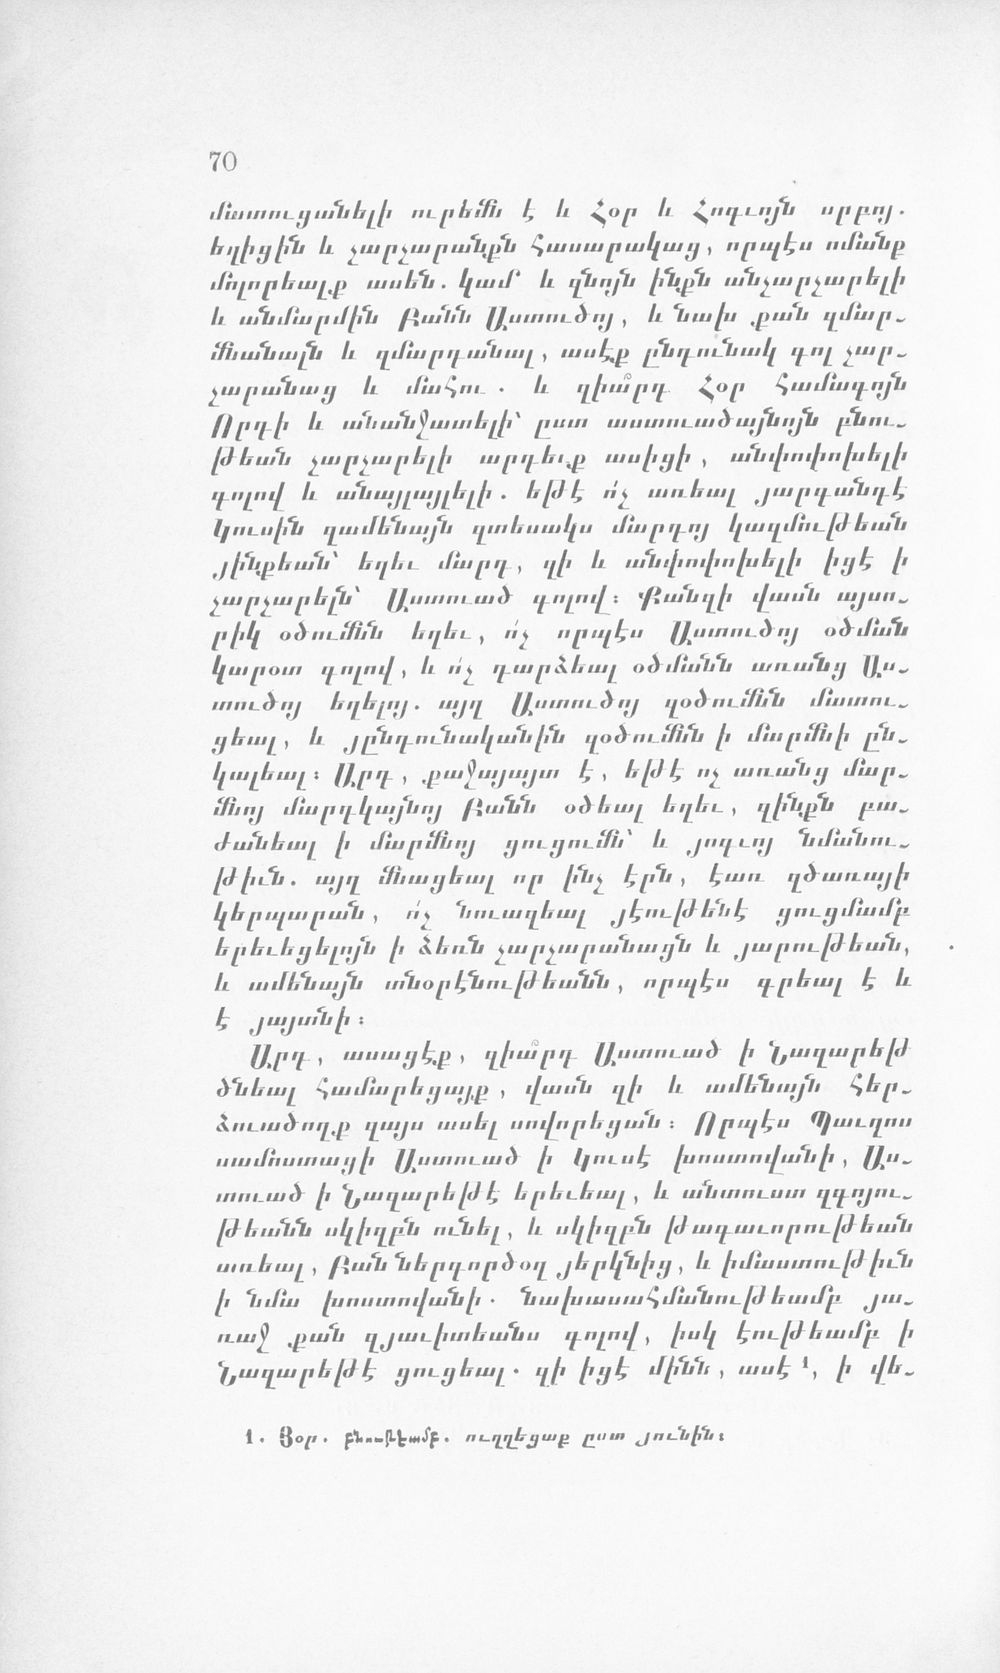 70
մատուցանելի ուրեմն է և Հօր և Հոգւոյն սրբոյ.
եղիցին և չարչարանքն հասարակաց, որպէս ոմանք
մոլորեալք ասեն. կամ՝ և զնոյն ինքն անչարչարելի
և անմարմին Բանն Աստուծոյ, և նախ քան զմար֊
մնանալն և զմարդանալ, ասէք ընդունակ գոլ չար֊
չարանաց և մահու. և զիա՞րդ Հօր համագոյն
Որդի և անանջատելի՝ ըստ աստուածայնոյն բնու֊
թեան չարչարելի արդեւք ասիցի, անփոփոխելի
գոլով և անայլայլելի. եթէ ո՛չ առեալ յարգանդէ
Կուսին զամենայն զտեսակս մարդոյ կազմութեան
յինքեան՝ եղեւ մարդ, զի և անփոփոխելի իցէ ի
չարչարելն՝ Աստուած գոլով։ Քանզի վասն այսո֊
րիկ օծումնն եղեւ, ո՛չ որպէս Աստուծոյ օծման
կարօտ գոլով, և ո՛չ դարձեալ օծմանն առանց Աս֊
տուծոյ եղելոյ. այղ Աստուծոյ զօծումնն մատու֊
ցեալ, և յընդունականին զօծումնն ի մարմնի ըն֊
կալեալ։ Արդ, քաջայայտ է, եթէ ոչ առանց մար֊
մնոյ մարդկայնոյ Բանն օծեալ եղեւ, զինքն բա֊
ժանեալ ի մարմնոյ ցուցումն՝ և յոգւոյ նմանու֊
թիւն. այղ մնացեալ որ ինչ էրն, էառ զծառայի
կերպարան, ո՛չ նուազեալ յէութենէ ցուցմամբ
երեւեցելոյն ի ձեռն չարչարանացն և յարութեան,
և ամենայն տնօրէնութեանն, որպէս գրեալ է և
է յայտնի։
Արդ, ասացէք, զիա՞րդ Աստուած ի Նազարեթ
ծնեալ համարեցայք, վասն զի և ամենայն հեր֊
ձուածողք զայս ասել սովորեցան։ Որպէս Պաւղոս
սամոստացի Աստուած ի Կուսէ խոստովանի, Աս֊
տուած ի Նազարեթէ երեւեալ, և անտուստ զգոյու֊
թեանն սկիզբն ունել, և սկիզբն թագաւորութեան
առեալ, Բան ներգործօղ յերկնից, և իմաստութիւն
ի նմա խոստովանի. նախասահմանութեամբ յա֊
ռաջ քան զյաւիտեանս գոլով, իսկ էութեամբ ի
Նազարեթէ ցուցեալ. զի իցէ մինն, ասէ ¹, ի վե֊
1. Յօր. բնութէամբ. ուղղեցաք ըստ յունին։